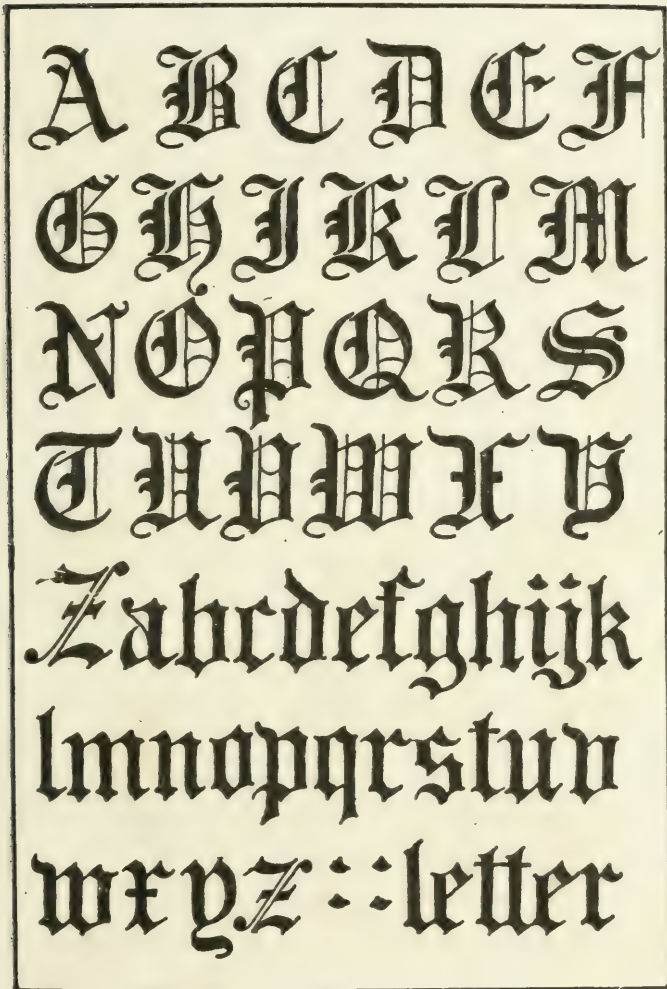 A B C D E F
G H I K L M
N O P Q R S
T U V W X Y
Z a b c d e f g h i j k
l m n o p q r s t u v
w x y z : : letter